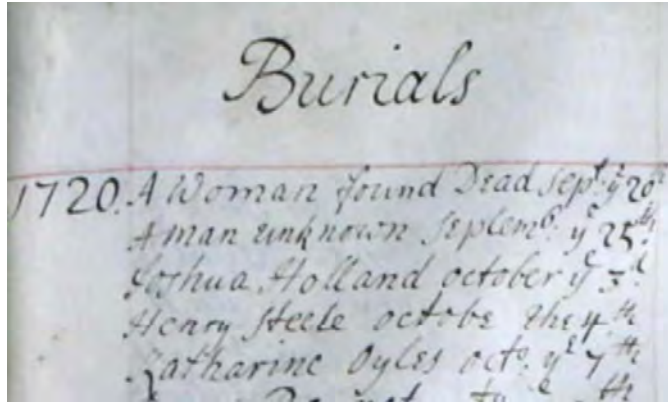 Burials
1720. A Woman found Dead Sept: yᵉ 20ᵗʰ
A man unknown Septemᵇ: yᵉ 25ᵗʰ
Joshua Holland october yᵉ 3ᵈ
Henry Steele octobr the 4ᵗʰ
Katharine Oyles octo: yᵉ 7ᵗʰ